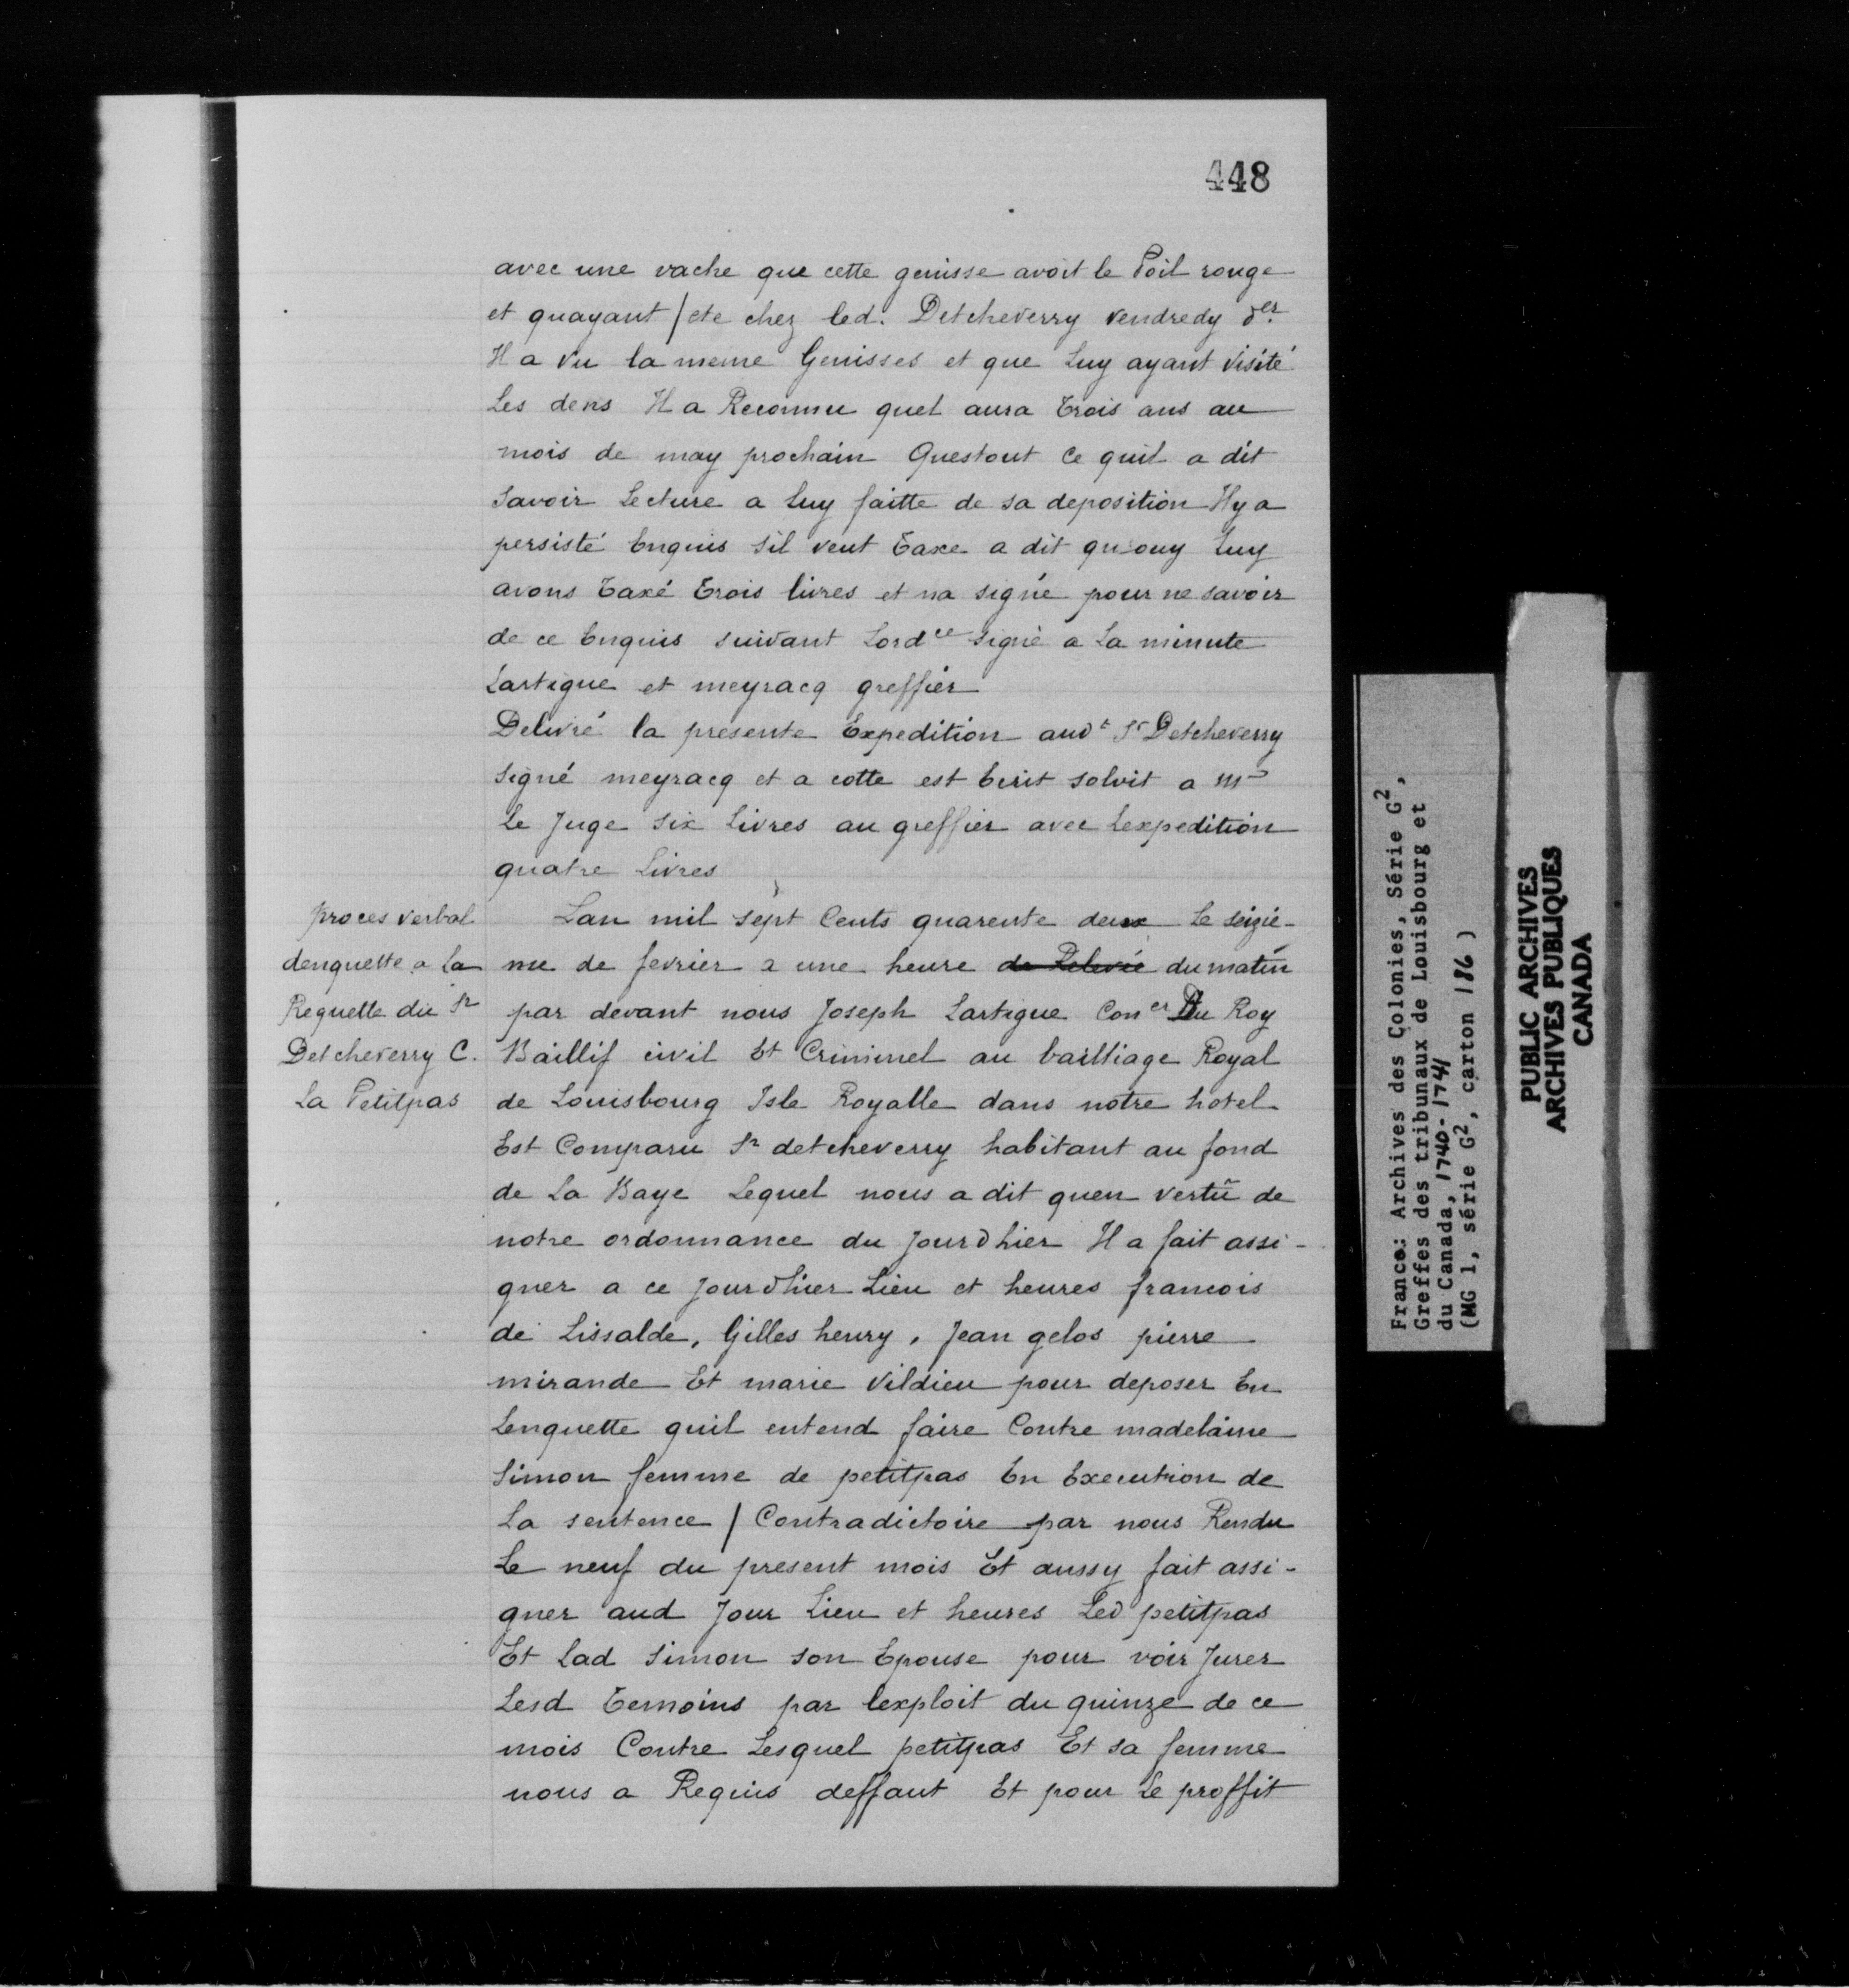 448
avec une vache que cette genisse avoit le Poil rouge
et quayant / ete chez led. Detcheverry vendredy der
Il a Vu la meme Genisses et que Luy ayant visité
Les dens Il a Reconnu quel aura trois ans au
mois de may prochain Questout Ce quil a dit
Savoir Lecture a luy faitte de sa deposition Il y a
persisté Enquis sil veut taxe a dit quouy Luy
avons taxé trois livres et na signé pour ne savoir
de ce Enquis suivant Lordce signé a La minute
Lartigue et meyracq greffier
Delivré la presente Expedition audt Sr Detcheverry
signé meyracq et a cotte est Ecrit solvit a Mr
Le Juge six Livres au greffier avec Lexpedition
quatre Livres
proces verbal
denquette a la
Requette du Sr
Detcheverry C.
La Petitpas
Lan mil sept Cents quarente deux Le seizie-
me de fevrier a une heure de Relevée du matin
par devant nous Joseph Lartigue Coner Du Roy
Baillif civil Et Criminel au bailliage Royal
de Louisbourg Isle Royalle dans notre hotel
Est Comparu Sr detcheverry habitant au fond
de La Baye Lequel nous a dit quen vertu de
notre ordonnance du Jourdhier Il a fait assi-
gner a ce Jourdhier Lieu et heures francois
de Lissalde, Gilles henry, Jean gelos pierre
mirande Et marie Vildieu pour deposer En
Lenquette quil entend faire Contre madelaine
Simon femme de petitpas En Execution de
La sentence / Contradictoire par nous Rendu
Le neuf du present mois Et aussy fait assi-
gner aud Jour Lieu et heures Led petitpas
Et Lad Simon son Epouse pour voir Jurer
Lesd temoins par lexploit du quinze de ce
mois Contre Lesquel petitpas Et sa femme
nous a Requis deffaut Et pour Le proffit
France: Archives des Colonies, Série G2,
Greffes des tribunaux de Louisbourg et
du Canada, 1740-1741
(MG 1, série G2, carton 186)
PUBLIC ARCHIVES
ARCHIVES PUBLIQUES
CANADA